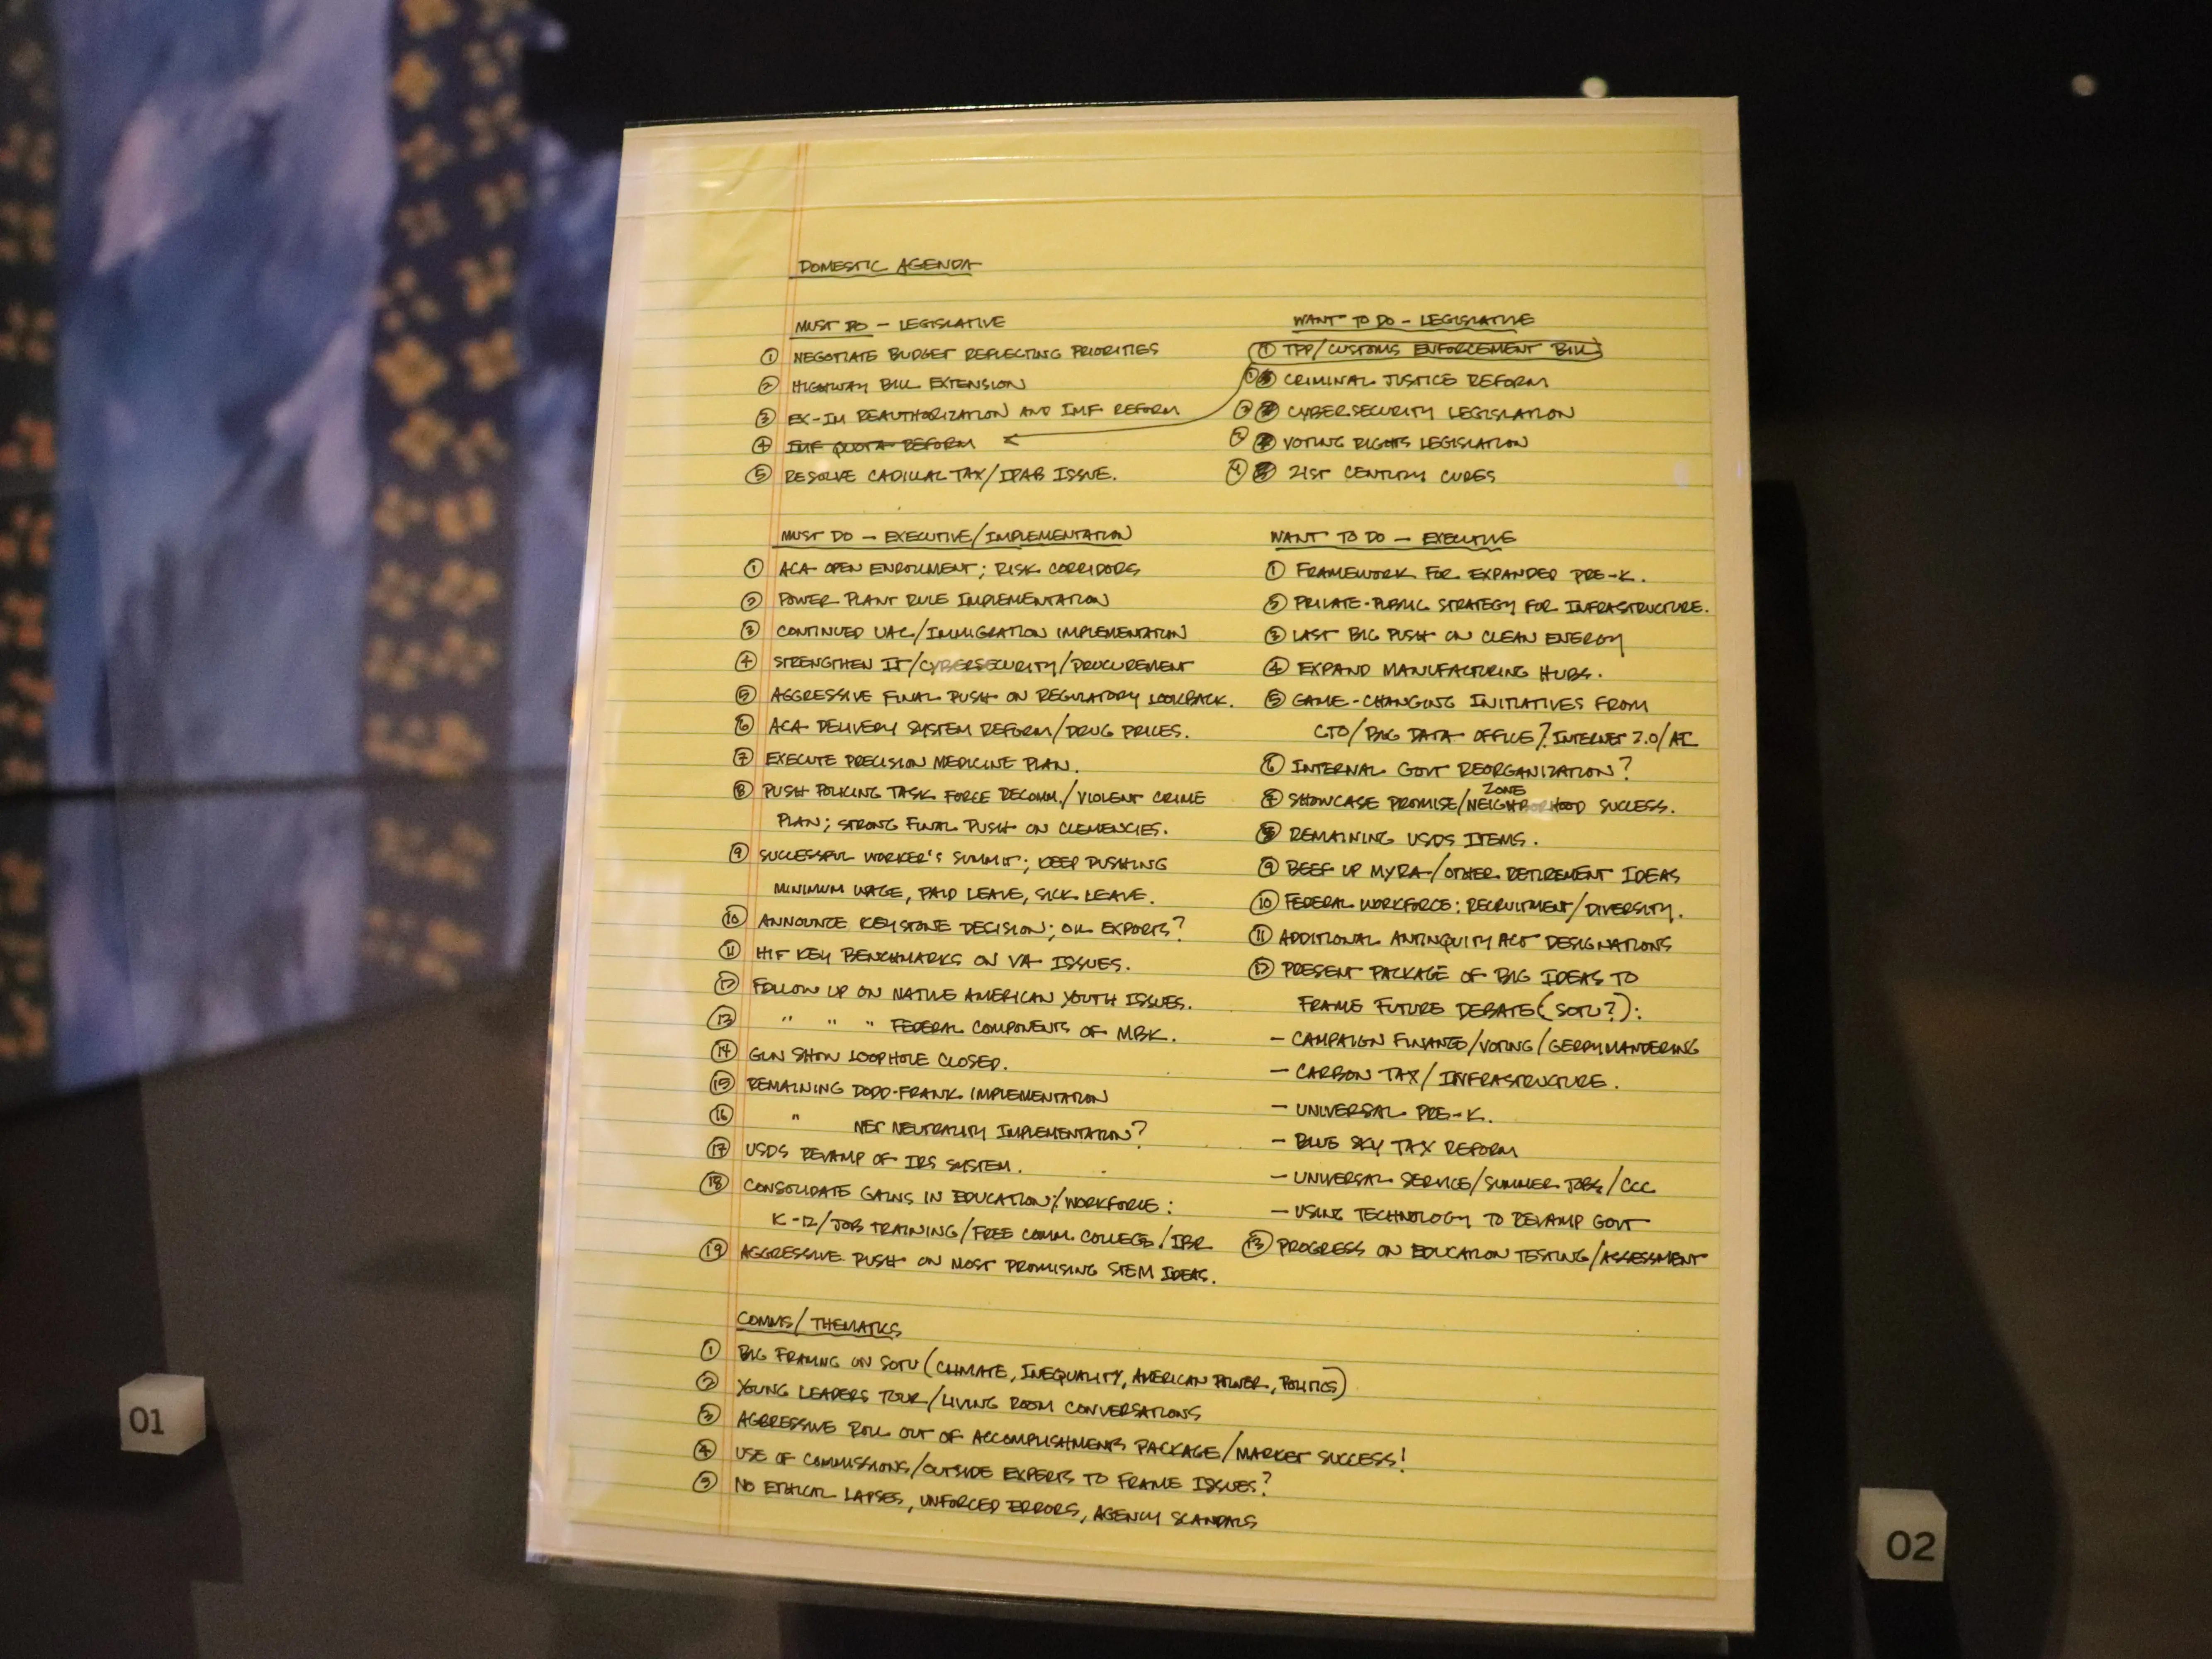 DOMESTIC AGENDA
MUST DO — LEGISLATIVE
① NEGOTIATE BUDGET REFLECTING PRIORITIES
② HIGHWAY BILL EXTENSION
③ EX-IM REAUTHORIZATION AND IMF REFORM
④ IMF QUOTA REFORM
⑤ RESOLVE CADILLAC TAX/IPAB ISSUE.
WANT TO DO — LEGISLATIVE
① TPP/CUSTOMS ENFORCEMENT BILL
① CRIMINAL JUSTICE REFORM
② CYBERSECURITY LEGISLATION
③ VOTING RIGHTS LEGISLATION
④ 21ST CENTURY CURES
MUST DO — EXECUTIVE/IMPLEMENTATION
① ACA OPEN ENROLLMENT; RISK CORRIDORS
② POWER PLANT RULE IMPLEMENTATION
③ CONTINUED UAC/IMMIGRATION IMPLEMENTATION
④ STRENGTHEN IT/CYBERSECURITY/PROCUREMENT
⑤ AGGRESSIVE FINAL PUSH ON REGULATORY LOOKBACK.
⑥ ACA DELIVERY SYSTEM REFORM/DRUG PRICES.
⑦ EXECUTE PRECISION MEDICINE PLAN.
⑧ PUSH POLICING TASK FORCE RECOMM./VIOLENT CRIME
PLAN; STRONG FINAL PUSH ON CLEMENCIES.
⑨ SUCCESSFUL WORKER'S SUMMIT; KEEP PUSHING
MINIMUM WAGE, PAID LEAVE, SICK LEAVE.
⑩ ANNOUNCE KEYSTONE DECISION; OIL EXPORTS?
⑪ HIT KEY BENCHMARKS ON VA ISSUES.
⑫ FOLLOW UP ON NATIVE AMERICAN YOUTH ISSUES.
⑬ " " " FEDERAL COMPONENTS OF MBK.
⑭ GUN SHOW LOOPHOLE CLOSED.
⑮ REMAINING DODD-FRANK IMPLEMENTATION
⑯ " NET NEUTRALITY IMPLEMENTATION?
⑰ USDS REVAMP OF IRS SYSTEM.
⑱ CONSOLIDATE GAINS IN EDUCATION/WORKFORCE:
K-12/JOB TRAINING/FREE COMM. COLLEGE/IBR
⑲ AGGRESSIVE PUSH ON MOST PROMISING STEM IDEAS.
WANT TO DO — EXECUTIVE
① FRAMEWORK FOR EXPANDED PRE-K.
② PRIVATE-PUBLIC STRATEGY FOR INFRASTRUCTURE.
③ LAST BIG PUSH ON CLEAN ENERGY
④ EXPAND MANUFACTURING HUBS.
⑤ GAME-CHANGING INITIATIVES FROM
CTO/BIG DATA OFFICE/? INTERNET 2.0/AI
⑥ INTERNAL GOVT REORGANIZATION?
⑦ SHOWCASE PROMISE ZONE/NEIGHBORHOOD SUCCESS.
⑧ REMAINING USDS ITEMS.
⑨ BEEF UP MYRA/OTHER RETIREMENT IDEAS
⑩ FEDERAL WORKFORCE: RECRUITMENT/DIVERSITY.
⑪ ADDITIONAL ANTINQUITY ACT DESIGNATIONS
⑫ PRESENT PACKAGE OF BIG IDEAS TO
FRAME FUTURE DEBATE (SOTU?):
— CAMPAIGN FINANCE/VOTING/GERRYMANDERING
— CARBON TAX/INFRASTRUCTURE.
— UNIVERSAL PRE-K.
— BLUE SKY TAX REFORM
— UNIVERSAL SERVICE/SUMMER JOBS/CCC
— USING TECHNOLOGY TO REVAMP GOVT
⑬ PROGRESS ON EDUCATION TESTING/ASSESSMENT
COMMS/THEMATICS
① BIG FRAMING ON SOTU (CLIMATE, INEQUALITY, AMERICAN POWER, POLITICS)
② YOUNG LEADERS TOUR/LIVING ROOM CONVERSATIONS
③ AGGRESSIVE ROLL OUT OF ACCOMPLISHMENTS PACKAGE/MARKET SUCCESS!
④ USE OF COMMISSIONS/OUTSIDE EXPERTS TO FRAME ISSUES?
⑤ NO ETHICAL LAPSES, UNFORCED ERRORS, AGENCY SCANDALS
01
02